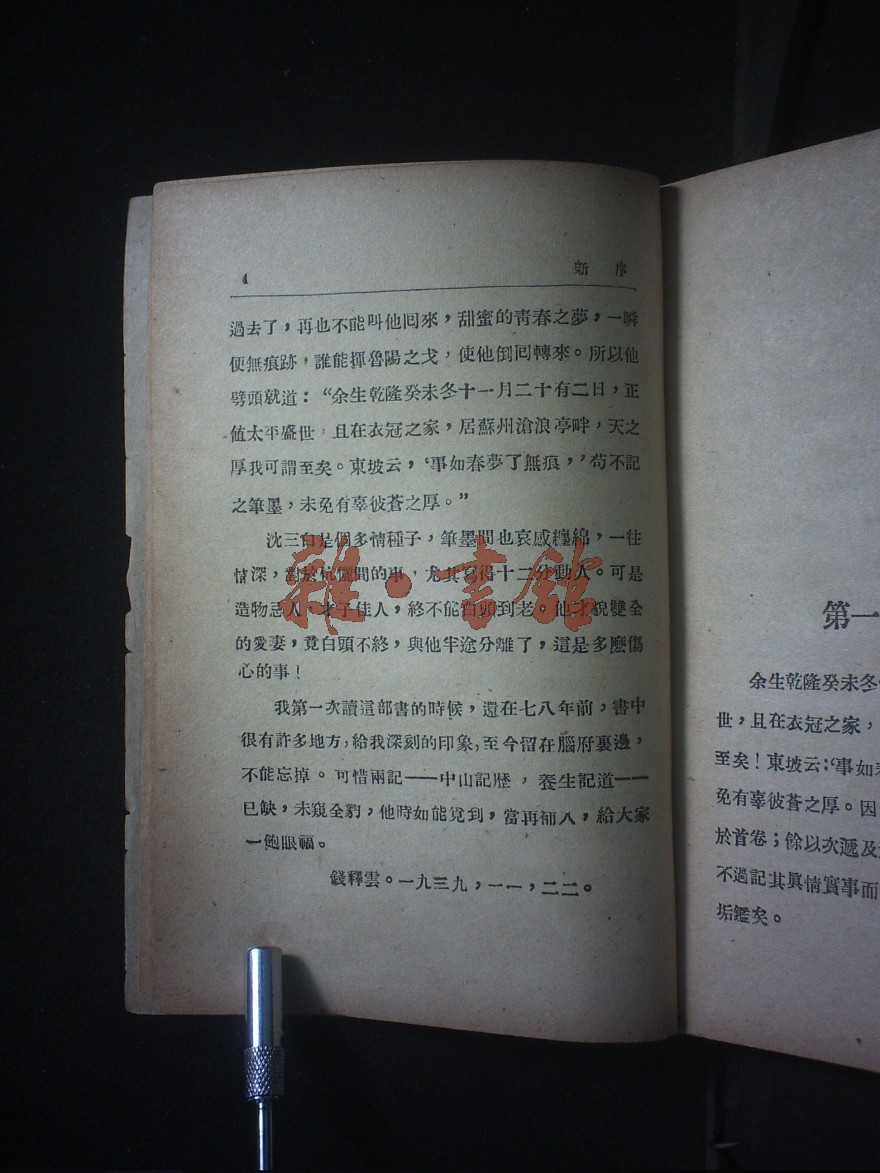 4
新序
過去了，再也不能叫他囘來，甜蜜的靑春之夢，一瞬
便無痕跡，誰能揮魯陽之戈，使他倒囘轉來。所以他
劈頭就道：“余生乾隆癸未冬十一月二十有二日，正
値太平盛世，且在衣冠之家，居蘇州滄浪亭畔，天之
厚我可謂至矣。東坡云，‘事如春夢了無痕，’苟不記
之筆墨，未免有辜彼蒼之厚。”
沈三白是個多情種子，筆墨間也哀感纏綿，一往
情深，對於伉儷間的事，尤其寫得十二分動人。可是
造物忌人，才子佳人，終不能白頭到老。他才貌雙全
的愛妻，竟白頭不終，與他半途分離了，這是多麽傷
心的事！
我第一次讀這部書的時候，還在七八年前，書中
很有許多地方，給我深刻的印象，至今留在腦府裏邊，
不能忘掉。可惜兩記——中山記歷，養生記道——
已缺，未窺全豹，他時如能覓到，當再補入，給大家
一飽眼福。
錢釋雲。一九三九，一一，二二。
雜·書館
第一
余生乾隆癸未冬
世，且在衣冠之家，
至矣！東坡云：‘事如春
免有辜彼蒼之厚。因
於首卷；餘以次遞及
不過記其眞情實事而
垢鑑矣。